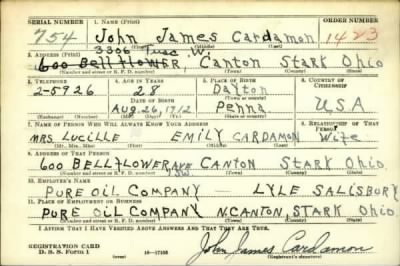 SERIAL NUMBER 1. NAME (Print) ORDER NUMBER
754 John James Cardamon 1423
(First) (Middle) (Last)
3306 Tusc. W.
2. ADDRESS (Print)
600 Bellflower, Canton Stark Ohio
(Number and street or R. F. D. number) (Town) (County) (State)
3. TELEPHONE 4. AGE IN YEARS 5. PLACE OF BIRTH 6. COUNTRY OF CITIZENSHIP
2-5926 28 Dalton
DATE OF BIRTH (Town or county)
Aug. 26, 1912 Penna USA
(Exchange) (Number) (Mo.) (Day) (Yr.) (State or country)
7. NAME OF PERSON WHO WILL ALWAYS KNOW YOUR ADDRESS 8. RELATIONSHIP OF THAT PERSON
MRS. LUCILLE EMILY CARDAMON Wife
(Mr., Mrs., Miss) (First) (Middle) (Last)
9. ADDRESS OF THAT PERSON
600 BELLflower AVE SW CANTON STARK Ohio
(Number and street or R. F. D. number) (Town) (County) (State)
10. EMPLOYER'S NAME
PURE OIL COMPANY — LYLE SALISBURY
11. PLACE OF EMPLOYMENT OR BUSINESS
PURE OIL COMPANY N. CANTON STARK Ohio
(Number and street or R. F. D. number) (Town) (County) (State)
I AFFIRM THAT I HAVE VERIFIED ABOVE ANSWERS AND THAT THEY ARE TRUE.
REGISTRATION CARD
D. S. S. Form 1 16—17105 John James Cardamon
(Registrant's signature)